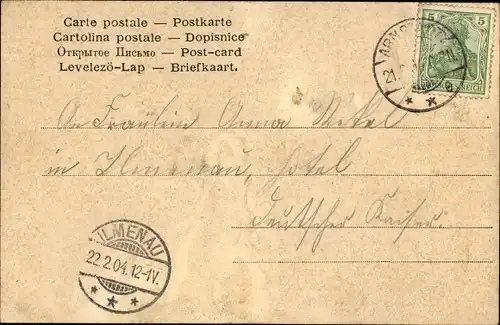 Carte postale — Postkarte
Cartolina postale — Dopisnice
Открытое Письмо — Post-card
Levelező-Lap — Briefkaart.
5 5
21.
An Fräulein Anna
in Ilmenau, Hotel
Deutscher Kaiser.
ILMENAU
22.2.04.12-1V.